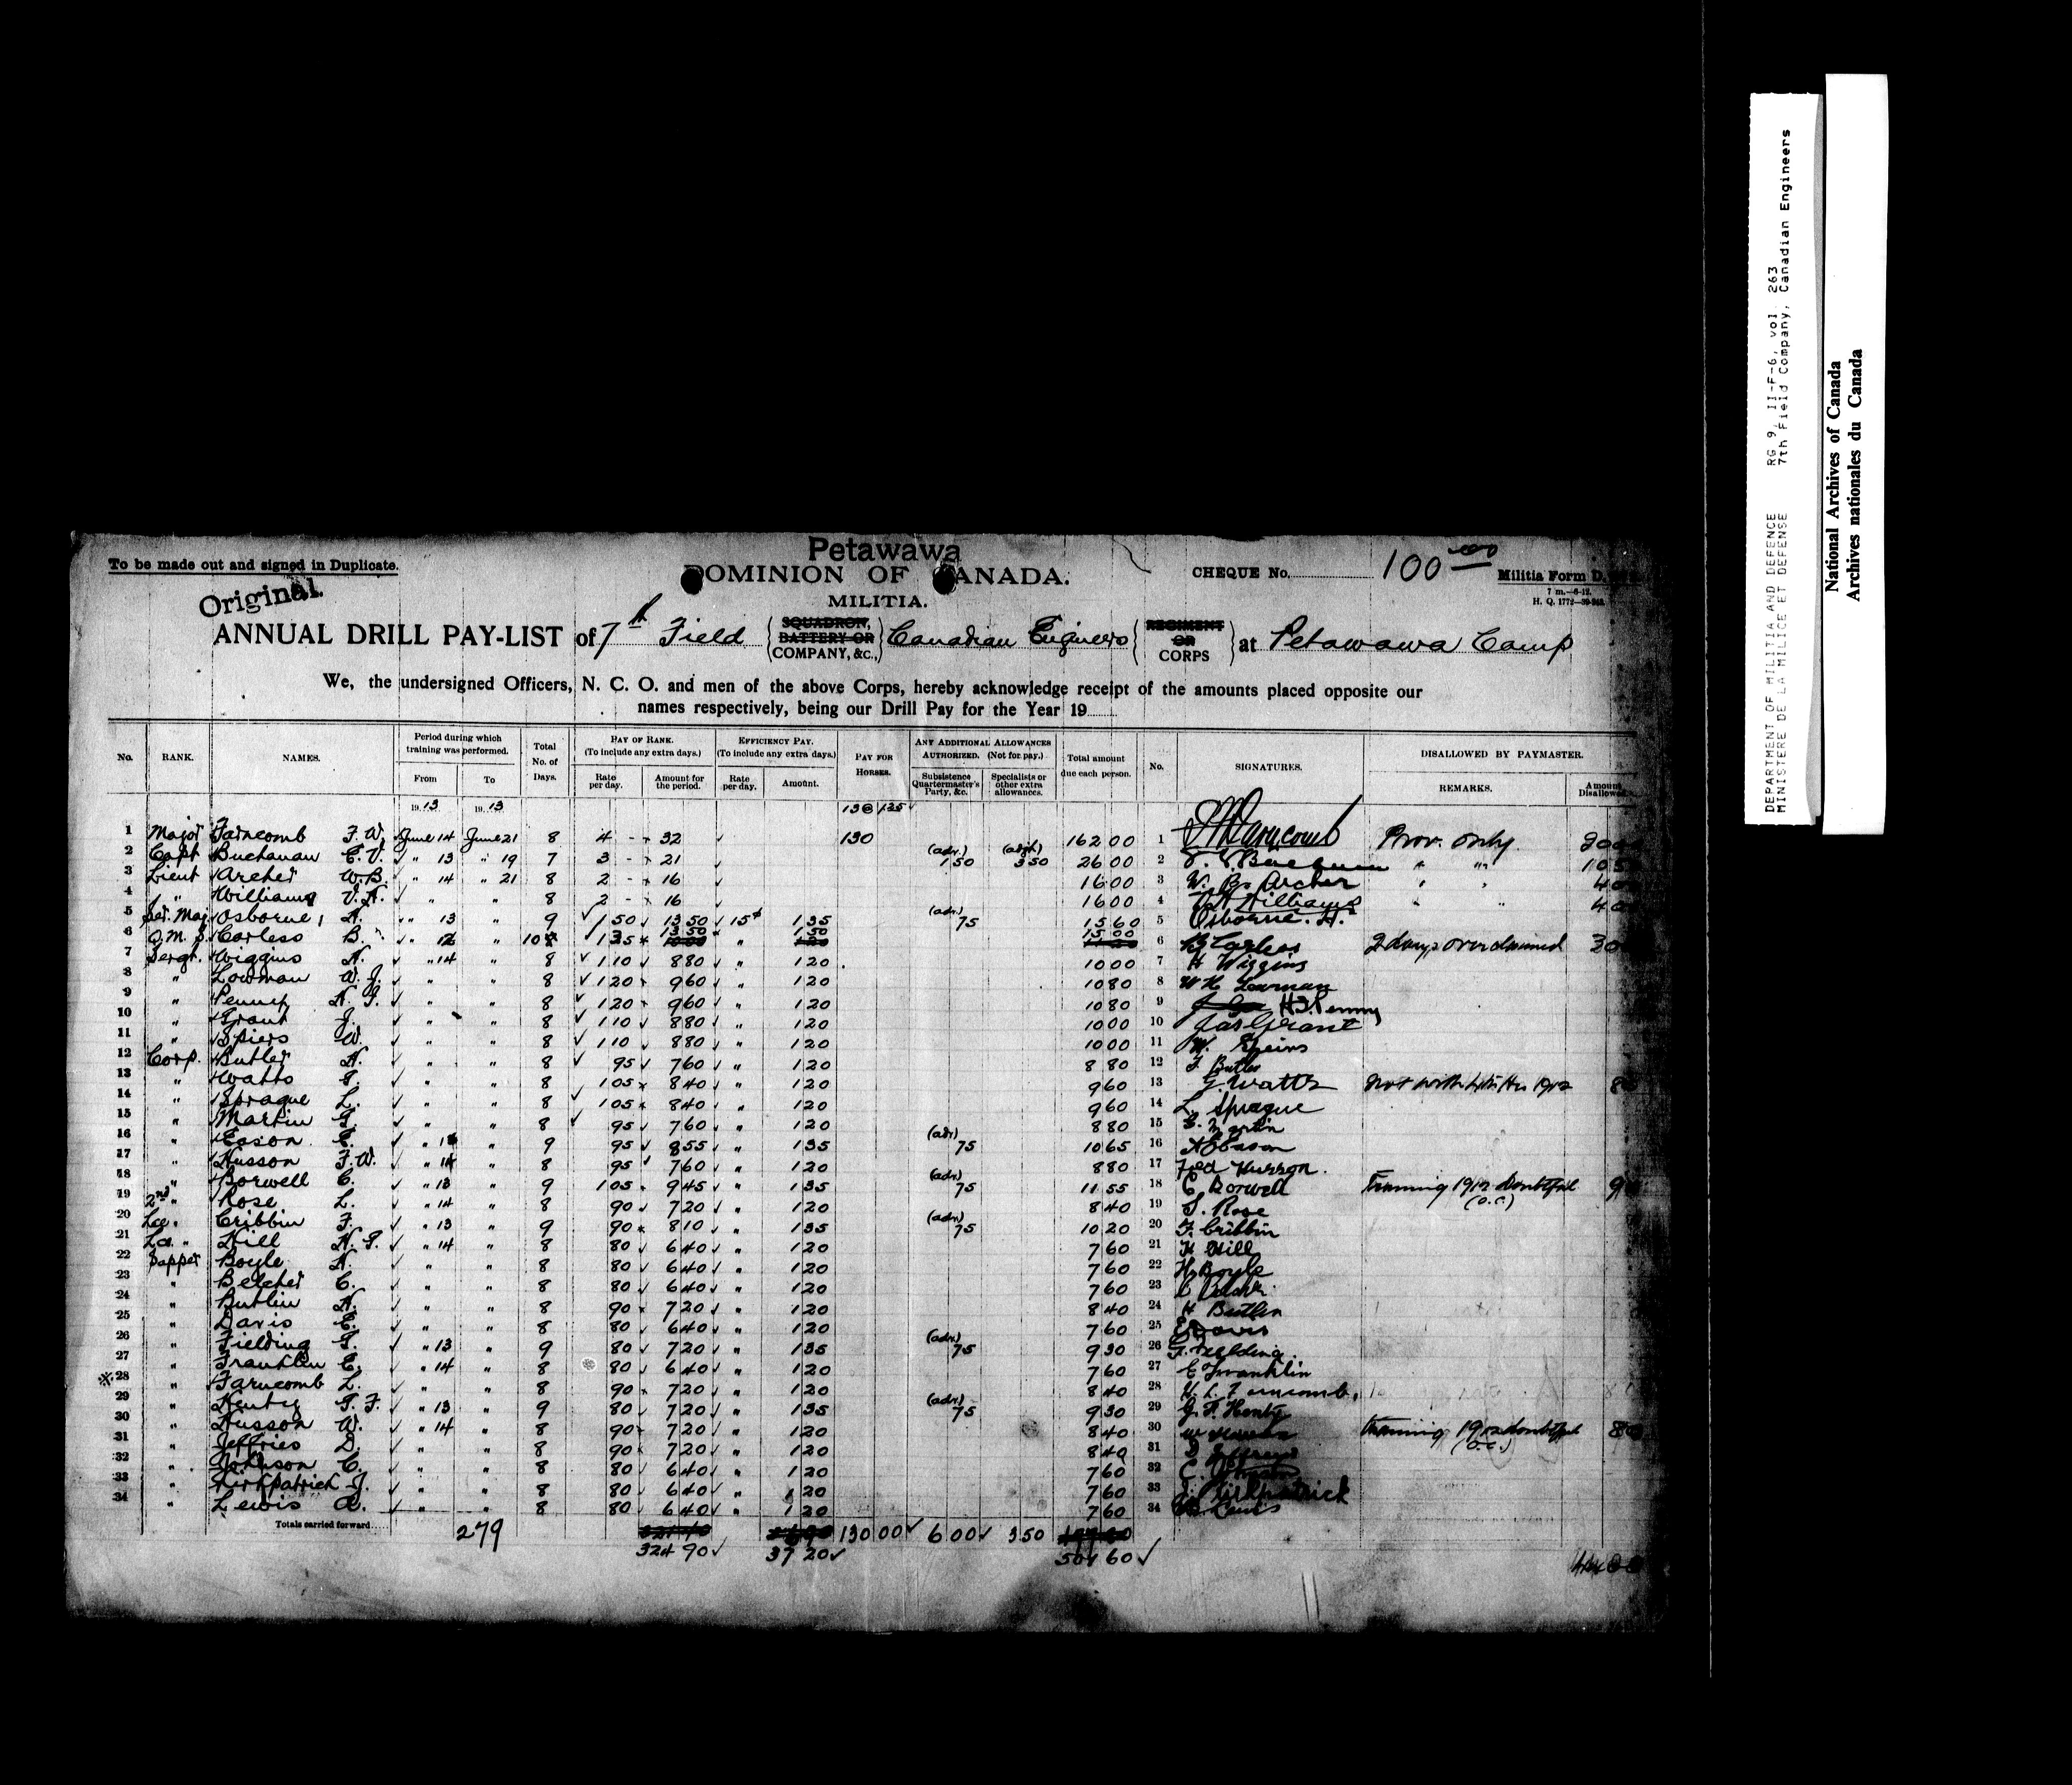 Petawawa
To be made out and signed in Duplicate.
DOMINION OF CANADA.
CHEQUE No. 100
Militia Form D.
Original.
MILITIA.
7 m.—6-12.
H. Q. 1772—39-
ANNUAL DRILL PAY-LIST of 7th Field { SQUADRON, BATTERY OR COMPANY, &c., } Canadian Engineers { REGIMENT OR CORPS } at Petawawa Camp
We, the undersigned Officers, N. C. O. and men of the above Corps, hereby acknowledge receipt of the amounts placed opposite our
names respectively, being our Drill Pay for the Year 19
No. RANK. NAMES. Period during which training was performed. From To Total No. of Days. PAY OF RANK. (To include any extra days.) Rate per day. Amount for the period. EFFICIENCY PAY. (To include any extra days.) Rate per day. Amount. PAY FOR HORSES. ANY ADDITIONAL ALLOWANCES AUTHORIZED. (Not for pay.) Subsistence Quartermaster's Party, &c. Specialists or other extra allowances. Total amount due each person. No. SIGNATURES. DISALLOWED BY PAYMASTER. REMARKS. Amount Disallowed
19 13 19 13
1 Major Farncomb F. W. June 14 June 21 8 4 - 32 130 162 00 1 Prov. only
2 Capt Buchanan C. V. " 13 " 19 7 3 - 21 (adv.) 1 50 3 50 26 00 2 " "
3 Lieut Archer W. B. " 14 " 21 8 2 - 16 16 00 3 W. B. Archer " "
4 " Williams V. A. " " 8 2 - 16 16 00 4 V A Williams " "
5 Ser. Maj. Osborne, A. " 13 " 9 1 50 13 50 15¢ 1 35 (adv.) 75 15 60 5 Osborne. A.
6 Q. M. S. Corless B. " 12 " 10 1 35 13 50 " 1 50 15 00 6 B Corless 2 days overclaimed
7 Sergt. Wiggins A. " 14 " 8 1 10 8 80 " 1 20 10 00 7 H Wiggins
8 " Lowman W. J. " " 8 1 20 9 60 " 1 20 10 80 8 Lowman
9 " Penney H. J. " " 8 1 20 9 60 " 1 20 10 80 9 H. J. Penney
10 " Grant J. " " 8 1 10 8 80 " 1 20 10 00 10 Jas Grant
11 " Spiers W. " " 8 1 10 8 80 " 1 20 10 00 11 W. Speirs
12 Corp. Butler A. " " 8 95 7 60 " 1 20 8 80 12 Butler
13 " Watts G. " " 8 1 05 8 40 " 1 20 9 60 13 G. Watts
14 " Sprague L. " " 8 1 05 8 40 " 1 20 9 60 14 L. Sprague
15 " Martin G. " " 8 95 7 60 " 1 20 8 80 15 Martin
16 " Eason C. " 13 " 9 95 8 55 " 1 35 (adv.) 75 10 65 16 Eason
17 " Husson F. W. " 14 " 8 95 7 60 " 1 20 8 80 17 Fred Husson.
18 " Borwell C. " 13 " 9 1 05 9 45 " 1 35 (adv.) 75 11 55 18 C Borwell Training 1912 doubtful (O.C.)
19 2nd " Rose L. " 14 " 8 90 7 20 " 1 20 8 40 19 Rose
20 Lce. Cribbin F. " 13 " 9 90 8 10 " 1 35 (adv.) 75 10 20 20 F. Cribbin
21 Lce. " Hill H. G. " 14 " 8 80 6 40 " 1 20 7 60 21 H Hill
22 Sapper Boyle H. " " 8 80 6 40 " 1 20 7 60 22 H. Boyle
23 " Belcher C. " " 8 80 6 40 " 1 20 7 60 23
24 " Butlin H. " " 8 90 7 20 " 1 20 8 40 24 H Butlin
25 " Davis E. " " 8 80 6 40 " 1 20 7 60 25 E Davis
26 " Fielding G. " 13 " 9 80 7 20 " 1 35 (adv.) 75 9 30 26 G. Fielding
27 " Franklin E. " 14 " 8 80 6 40 " 1 20 7 60 27 E Franklin
28 " Farncomb L. " " 8 90 7 20 " 1 20 8 40 28 Farncomb
29 " Henty G. F. " 13 " 9 80 7 20 " 1 35 (adv.) 75 9 30 29 G. F. Henty
30 " Husson W. " 14 " 8 90 7 20 " 1 20 8 40 30 W Husson Training 1912 doubtful (O.C.)
31 " Jeffries D. " " 8 90 7 20 " 1 20 8 40 31 D Jeffreys
32 " Johnson C. " " 8 80 6 40 " 1 20 7 60 32 C. Johnson
33 " Kirkpatrick J. " " 8 80 6 40 " 1 20 7 60 33 J. Kirkpatrick
34 " Lewis A. " " 8 80 6 40 " 1 20 7 60 34 Lewis
Totals carried forward 279 130 00 6 00 3 50
324 90 37 20 501 60
DEPARTMENT OF MILITIA AND DEFENCE RG 9, II-F-6, vol 263
MINISTERE DE LA MILICE ET DEFENSE 7th Field Company, Canadian Engineers
National Archives of Canada
Archives nationales du Canada